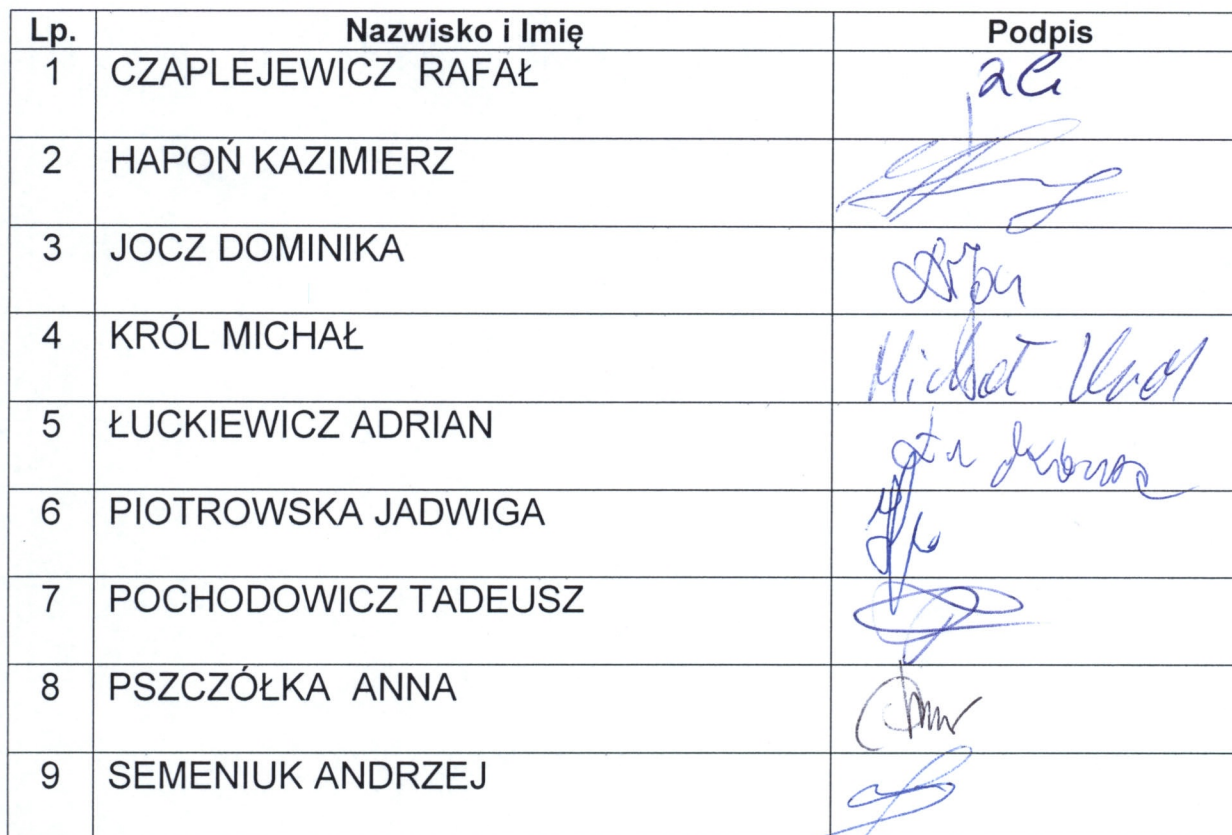 Lp. Nazwisko i Imię Podpis
1 CZAPLEJEWICZ RAFAŁ
2 HAPOŃ KAZIMIERZ
3 JOCZ DOMINIKA
4 KRÓL MICHAŁ Michał Król
5 ŁUCKIEWICZ ADRIAN
6 PIOTROWSKA JADWIGA
7 POCHODOWICZ TADEUSZ
8 PSZCZÓŁKA ANNA
9 SEMENIUK ANDRZEJ